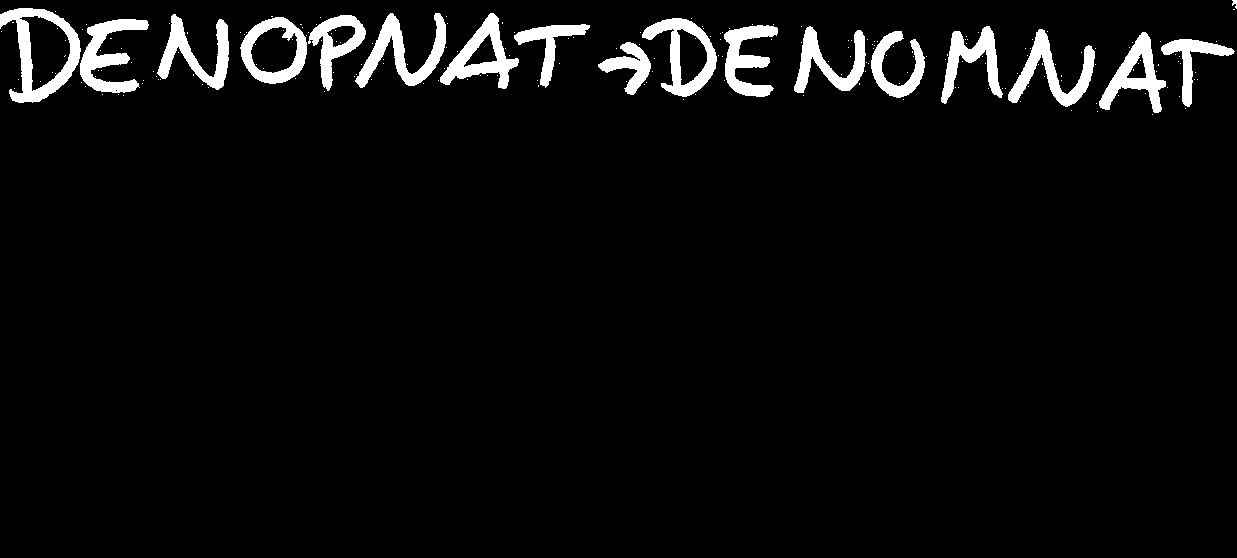 DENOPNAT → DENOMNAT